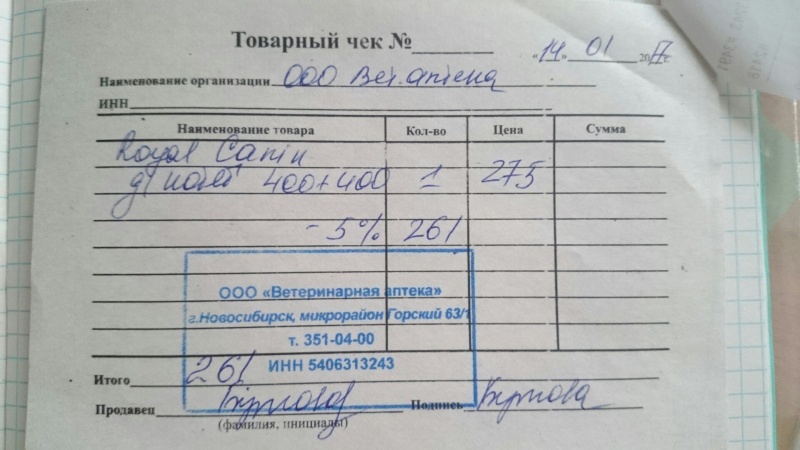 Товарный чек №
"14" 01 2017 г
Наименование организации ООО Вет. аптека
ИНН
Наименование товара Кол-во Цена Сумма
Royal Canin
д/ кошек 400+400 1 275
-5% 261
ООО «Ветеринарная аптека»
г.Новосибирск, микрорайон Горский 63/1
т. 351-04-00
ИНН 5406313243
Итого 261
Продавец
Подпись
(фамилия, инициалы)